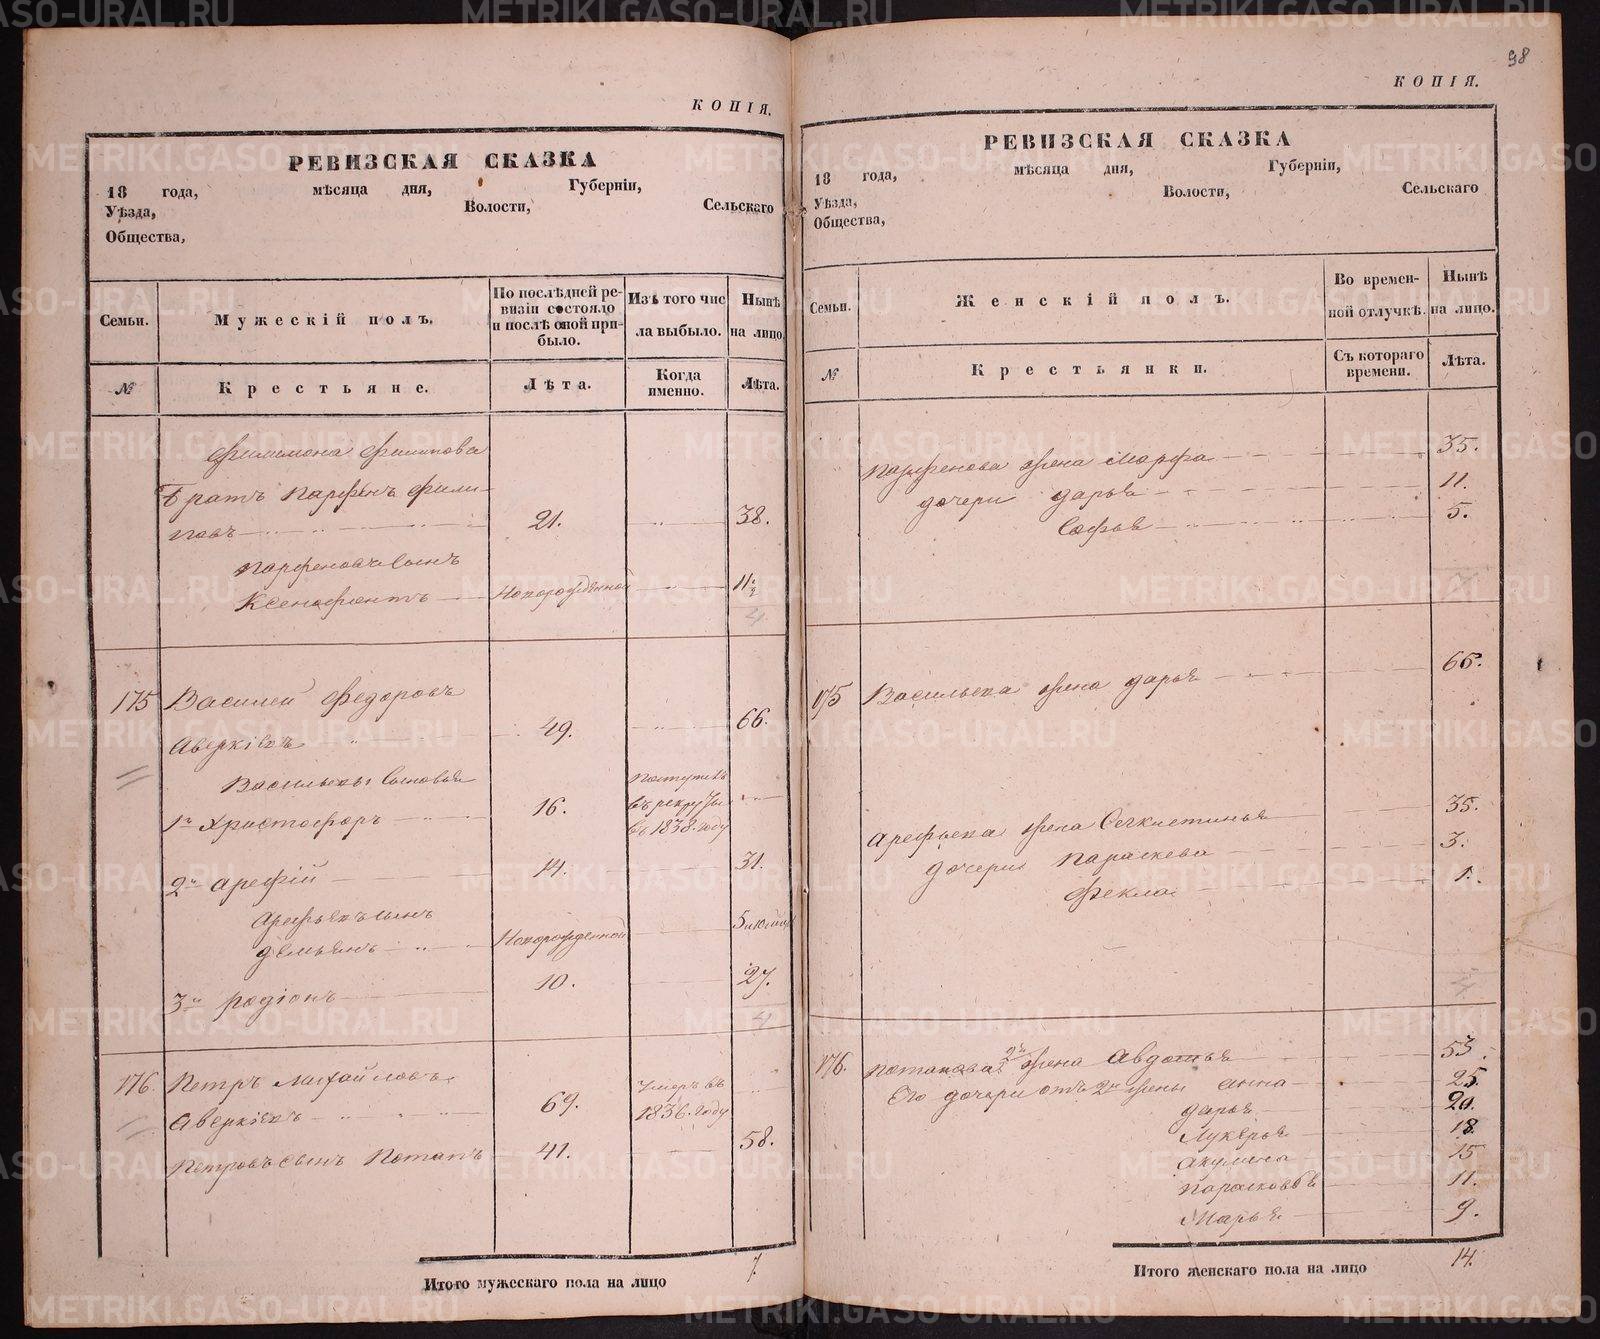 КОПІЯ.
РЕВИЗСКАЯ СКАЗКА
18 года, мѣсяца дня, Губерніи,
Уѣзда, Волости, Сельскаго
Общества,
Семьи. Мужескій полъ. По послѣдней ревизіи состояло и послѣ оной прибыло. Изъ того числа выбыло. Нынѣ на лицо.
№ Крестьяне. Лѣта. Когда именно. Лѣта.
Филимона Филипова
Братъ Парфенъ Фили-
повъ 21. 38.
Парфеновъ сынъ
Ксенофонтъ Новорожденной 11½
4
175 Василей Федоровъ
Аверкіевъ 49. 66.
Васильевы сыновья
1й Христофоръ 16. поступилъ въ рекруты въ 1838. году
2й Арефій 14. 31.
Арефьевъ сынъ
Демьянъ Новорожденной
3й Родіонъ 10. 27.
4
176. Петръ Михайловъ
Аверкіевъ 69. Умеръ въ 1836. году
Петровъ сынъ Потапъ 41. 58.
Итого мужескаго пола на лицо 7.
98
КОПІЯ.
РЕВИЗСКАЯ СКАЗКА
18 года, мѣсяца дня, Губерніи,
Уѣзда, Волости, Сельскаго
Общества,
Семьи. Женскій полъ. Во временной отлучкѣ. Нынѣ на лицо.
№ Крестьянки. Съ котораго времени. Лѣта.
Парфенова жена Марфа 35.
дочери Дарья 11.
Софья 5.
175 Васильева жена Дарья 66.
Арефьева жена 35.
дочери Параскева 3.
Фекла 1.
4
176. Потапова 2я жена Авдотья 53.
Его дочери отъ 2й жены Анна 25.
Дарья 20.
Лукерья 18.
Акулина 15
Парасковья 11.
Марья 9.
Итого женскаго пола на лицо 14.
METRIKI.GASO-URAL.RU